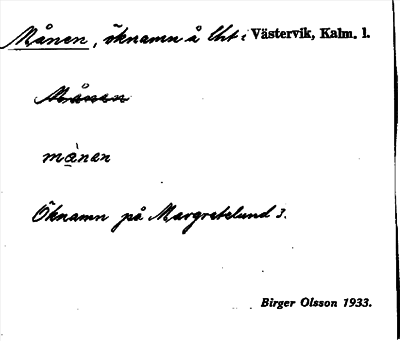 Månen, öknamn å lht i Västervik, Kalm. l.
Månen
månan
Öknamn på Margretelund 3.
Birger Olsson 1933.